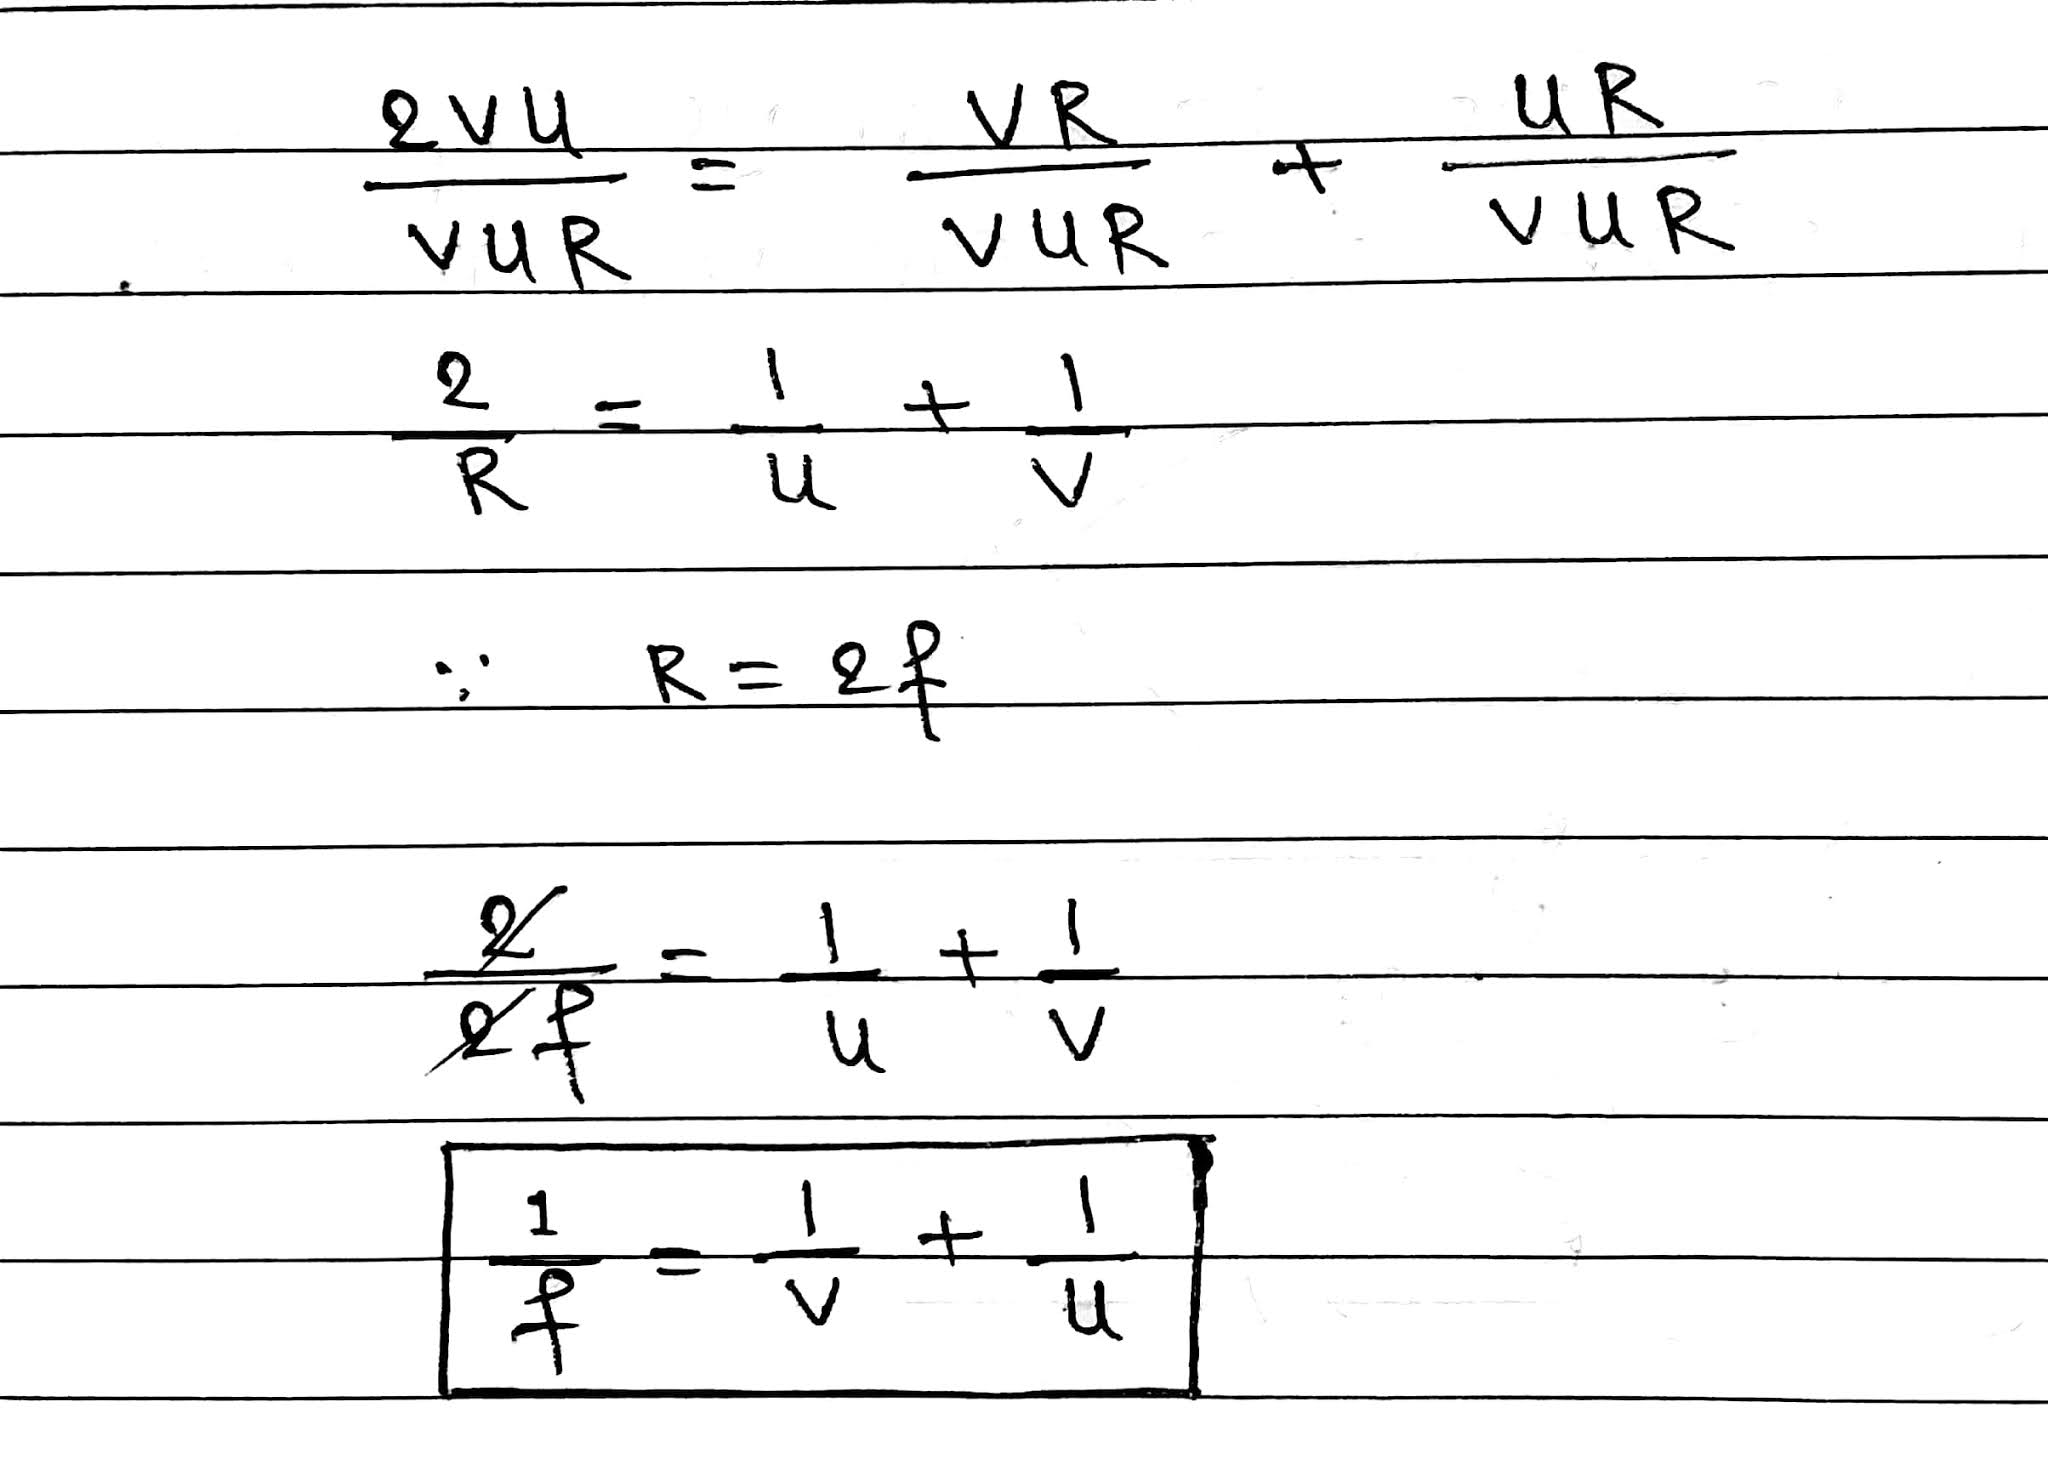 2vu/vuR = vR/vuR + uR/vuR
2/R = 1/u + 1/v
∵ R = 2f
2/2f = 1/u + 1/v
1/f = 1/v + 1/u